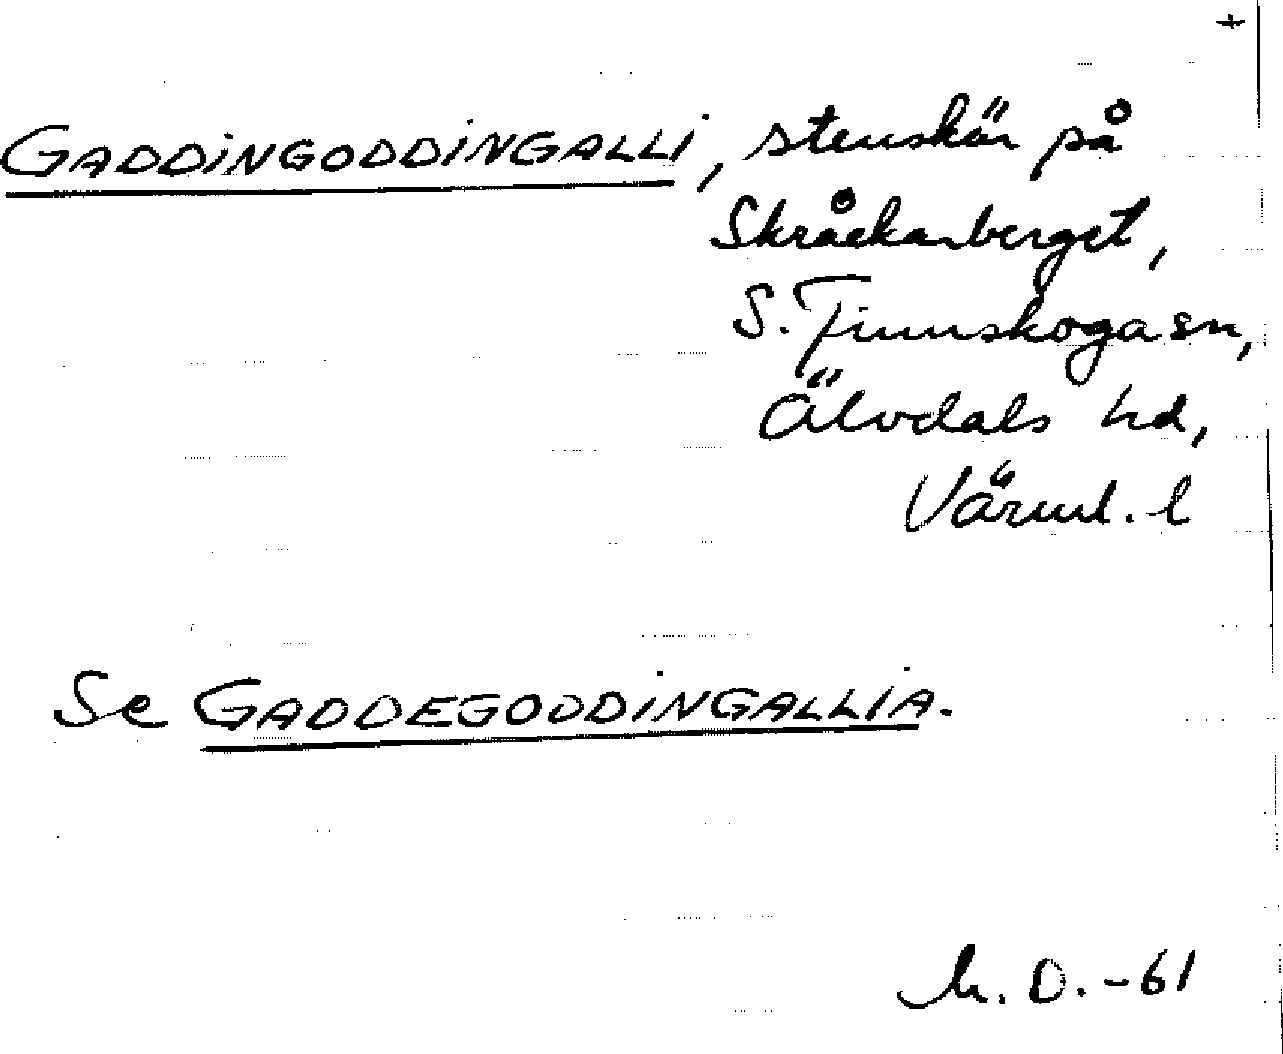 +
GADDINGODDINGALLI, stenskär på
Skråckarberget,
S. Finnskoga sn,
Älvdals hd,
Värml. l
Se GADDEGODDINGALLIA.
M. D. -61